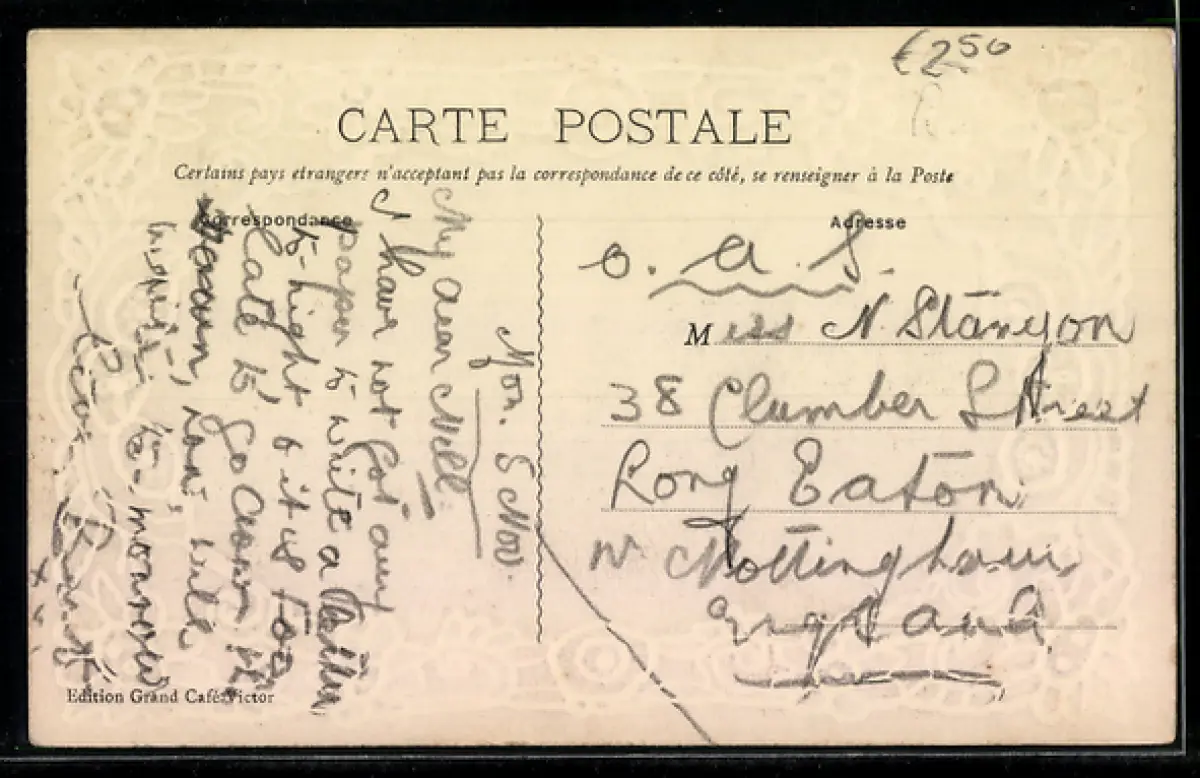 €2.50
R
CARTE POSTALE
Certains pays etrangers n'acceptant pas la correspondance de ce côté, se renseigner à la Poste
Correspondance
Adresse
Mon. 8 Nov.
My dear Nell.
I have not got any
paper to write a letter
to-night & it is too
late to go down to
town, now, will
write to-morrow
O. A. S.
Miss N. Stanyon
38 Clumber Street
Long Eaton
Nr Nottingham
England
Edition Grand Café Victor